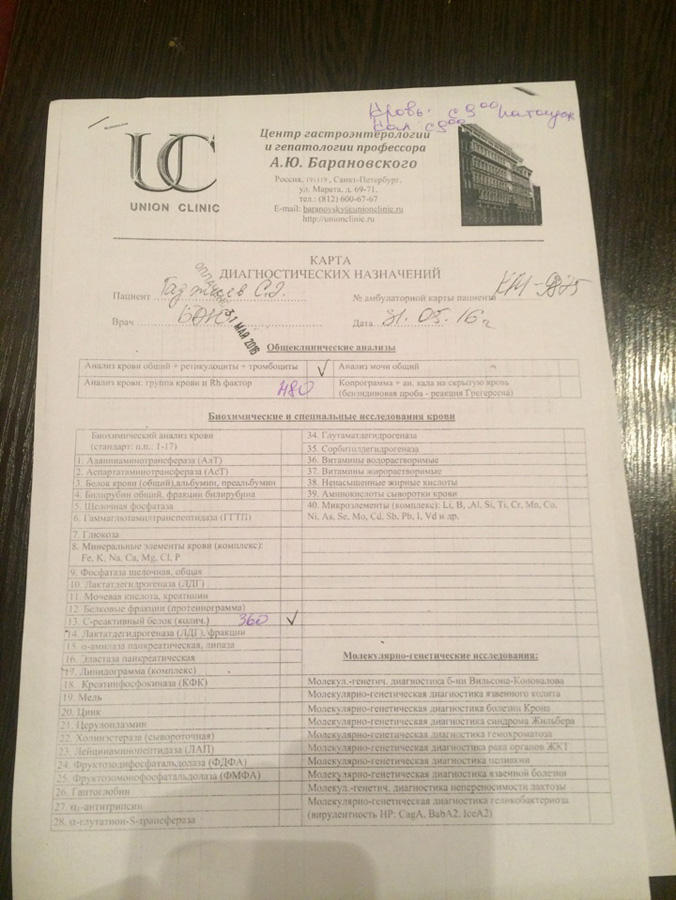 Кровь с 9 00 натощак
Кал с 9 00
UC
UNION CLINIC
Центр гастроэнтерологии
и гепатологии профессора
А.Ю. Барановского
Россия, 191119, Санкт-Петербург,
ул. Марата, д. 69-71,
тел.: (812) 600-67-67
E-mail: baranovsky@unionclinic.ru
http://unionclinic.ru
КАРТА
ДИАГНОСТИЧЕСКИХ НАЗНАЧЕНИЙ
Пациент № амбулаторной карты пациента
Врач Дата 31.05.16 г
31 МАЯ 2016
Общеклинические анализы
Анализ крови общий + ретикулоциты + тромбоциты ✓ Анализ мочи общий
Анализ крови: группа крови и Rh фактор 480 Копрограмма + ан. кала на скрытую кровь
(бензидиновая проба - реакция Грегерсена)
Биохимические и специальные исследования крови
Биохимический анализ крови
(стандарт: п.п.. 1-17)
1. Аланинаминотрансфераза (АлТ)
2. Аспартатаминотрансфераза (АсТ)
3. Белок крови (общий),альбумин, преальбумин
4. Билирубин общий, фракции билирубина
5. Щелочная фосфатаза
6. Гаммаглютамилтранспептидаза (ГГТП)
7. Глюкоза
8. Минеральные элементы крови (комплекс):
Fe, K, Na, Ca, Mg, Cl, P
9. Фосфатаза щелочная, общая
10. Лактатдегидрогеназа (ЛДГ)
11. Мочевая кислота, креатинин
12. Белковые фракции (протеинограмма)
13. С-реактивный белок (колич.) 360 ✓
14. Лактатдегидрогеназа (ЛДГ), фракции
15. α-амилаза панкреатическая, липаза
16. Эластаза панкреатическая
17. Липидограмма (комплекс)
18. Креатинфосфокиназа (КФК)
19. Медь
20. Цинк
21. Церулоплазмин
22. Холинэстераза (сывороточная)
23. Лейцинаминопептидаза (ЛАП)
24. Фруктозодифосфатальдолаза (ФДФА)
25. Фруктозомонофосфатальдолаза (ФМФА)
26. Гаптоглобин
27. α₁-антитрипсин
28. α-глутатион-S-трансфераза
34. Глутаматдегидрогеназа
35. Сорбитолдегидрогеназа
36. Витамины водорастворимые
37. Витамины жирорастворимые
38. Ненасыщенные жирные кислоты
39. Аминокислоты сыворотки крови
40. Микроэлементы (комплекс): Li, B, ,Al, Si, Ti, Cr, Mn, Co,
Ni, As, Se, Mo, Cd, Sb, Pb, I, Vd и др.
Молекулярно-генетические исследования:
Молекул.-генетич. диагностика б-ни Вильсона-Коновалова
Молекулярно-генетическая диагностика язвенного колита
Молекулярно-генетическая диагностика болезни Крона
Молекулярно-генетическая диагностика синдрома Жильбера
Молекулярно-генетическая диагностика гемохроматоза
Молекулярно-генетическая диагностика рака органов ЖКТ
Молекулярно-генетическая диагностика целиакии
Молекулярно-генетическая диагностика язвенной болезни
Молекул.-генетич. диагностика непереносимости лактозы
Молекулярно-генетическая диагностика геликобактериоза
(вирулентность HP: CagA, BabA2, IceA2)